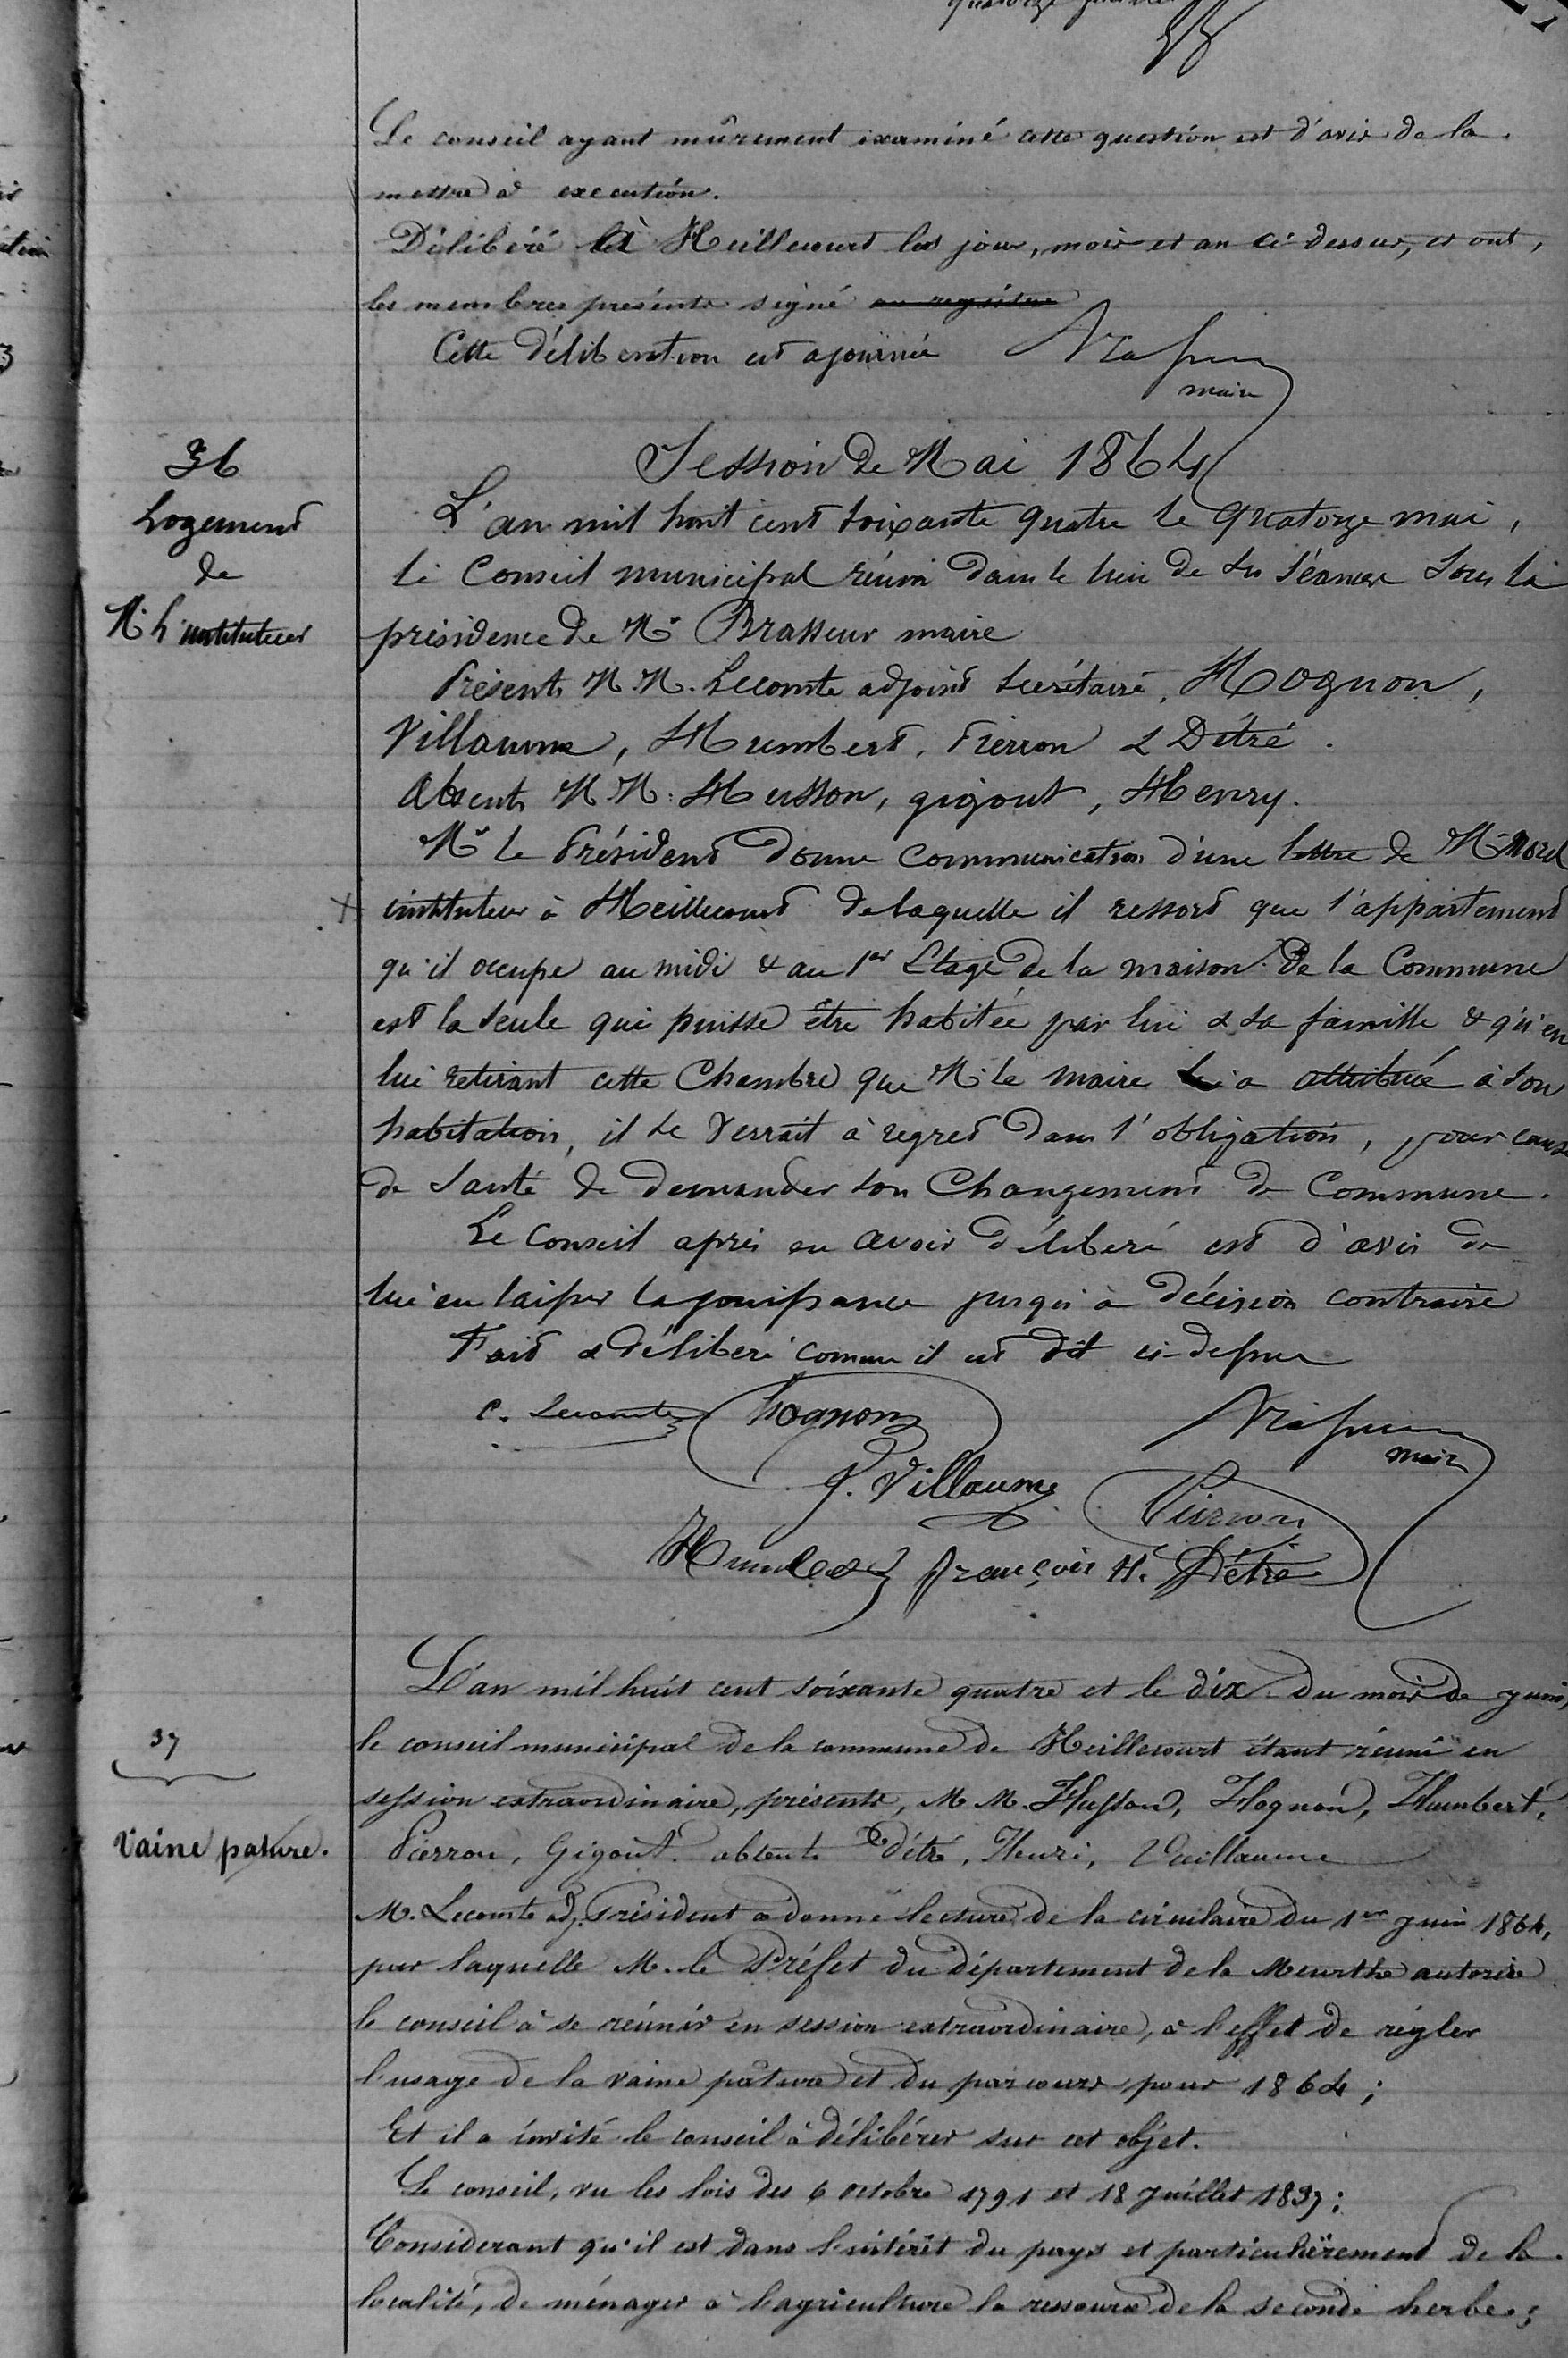 Le conseil ayant mûrement examiné cette question est d'avis de la
mettre à exécution.
Délibéré à Heillecourt les jour, mois et an ci-dessus, et ont,
les membres présents signé au registre
Cette délibération est ajournée
maire
36
Logement
de
M. L'instituteur
Session de Mai 1864
L'an mil huit cent soixante quatre le quatorze mai,
le Conseil municipal réuni dans le lieu de ses séances sous la
présidence de Mr Brasseur maire
Présents M.M. Lecomte adjoint secrétaire, Hognon,
Villaume, Humbert, Pierron & Détré.
Absents M.M. Husson, gigout, Henry.
Mr le Président donne communication d'une lettre de M. Morel
instituteur à Heillecourt de laquelle il ressort que l'appartement
qu'il occupe au midi & au 1er Etage de la maison de la Commune
est la seule qui puisse être habitée par lui & sa famille & qu'en
lui retirant cette Chambre que M. le maire lui a attribuée à son
habitation, il se verrait à regret dans l'obligation, pour cause
de santé de demander son Changement de Commune.
Le Conseil après en avoir délibéré est d'avis de
lui en laisser la jouissance jusqu'à décision contraire
Fait & délibéré comme il est dit ci-dessus
C. Lecomte hognon
maire
J. Villaume Pierron
Humbert françois H. Détré
37
Vaine pature.
L'an mil huit cent soixante quatre et le dix du mois de juin,
le conseil municipal de la commune de Heillecourt étant réuni en
session extraordinaire, présents, M M. Husson, Hognon, Humbert,
Pierron, Gigout. absents Détré, Henri, Vuillaume
M. Lecomte adj. Président a donné lecture de la circulaire du 1er juin 1864,
par laquelle M. le Préfet du département de la Meurthe autorise
le conseil à se réunir en session extraordinaire, à l'effet de régler
l'usage de la vaine pâture et du parcours pour 1864;
Et il a invité le conseil à délibérer sur cet objet.
Le conseil, vu les lois des 6 octobre 1791 et 18 juillet 1837;
Considerant qu'il est dans l'intérêt du pays et particulièrement de la
localité, de ménager à l'agriculture la ressource de la seconde herbe;